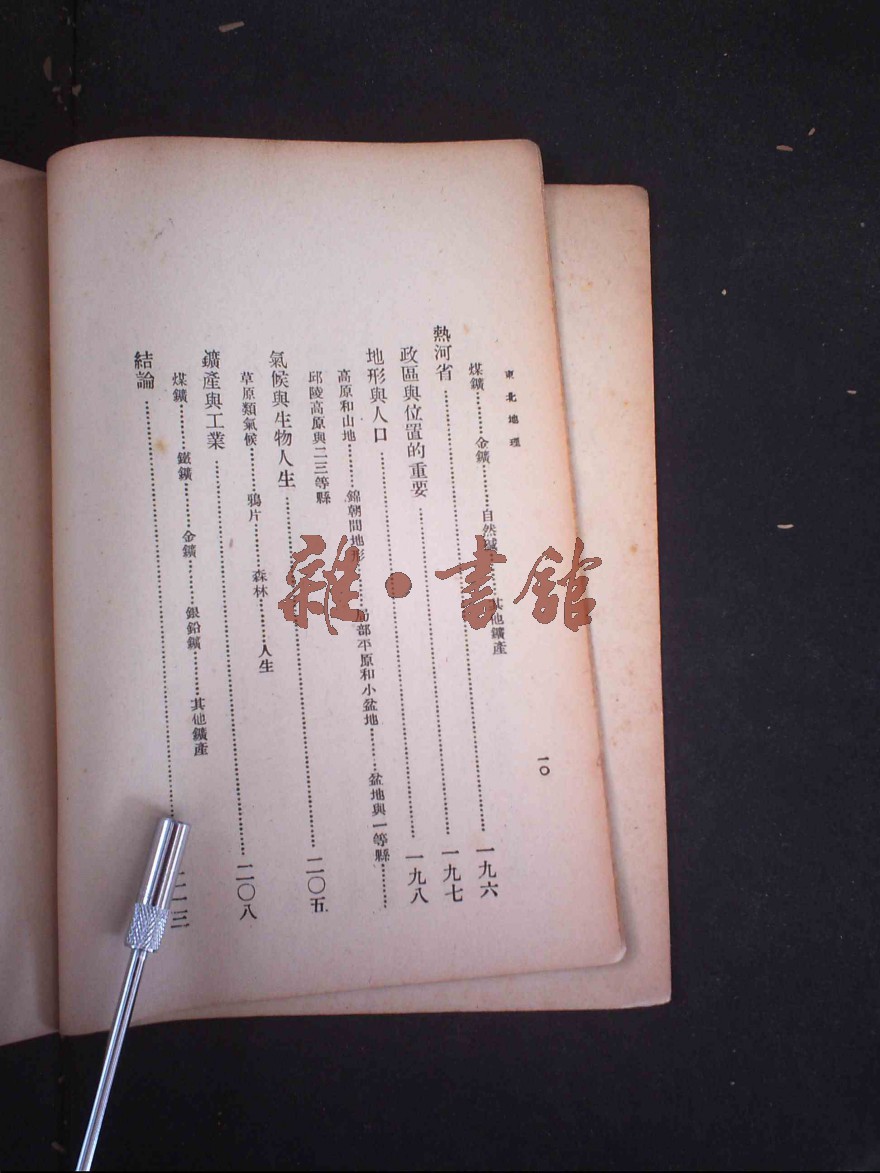 東北地理
一〇
煤鑛………金鑛………自然鹼………其他鑛產
熱河省………一九六
政區與位置的重要………一九七
地形與人口………一九八
高原和山地………錦朝間地形………局部平原和小盆地………盆地與一等縣………
邱陵高原與二三等縣
氣候與生物人生………二〇五
草原類氣候………鴉片………森林………人生
鑛產與工業………二〇八
煤鑛………鐵鑛………金鑛………銀鉛鑛………其他鑛產
結論………二一三
雜·書館